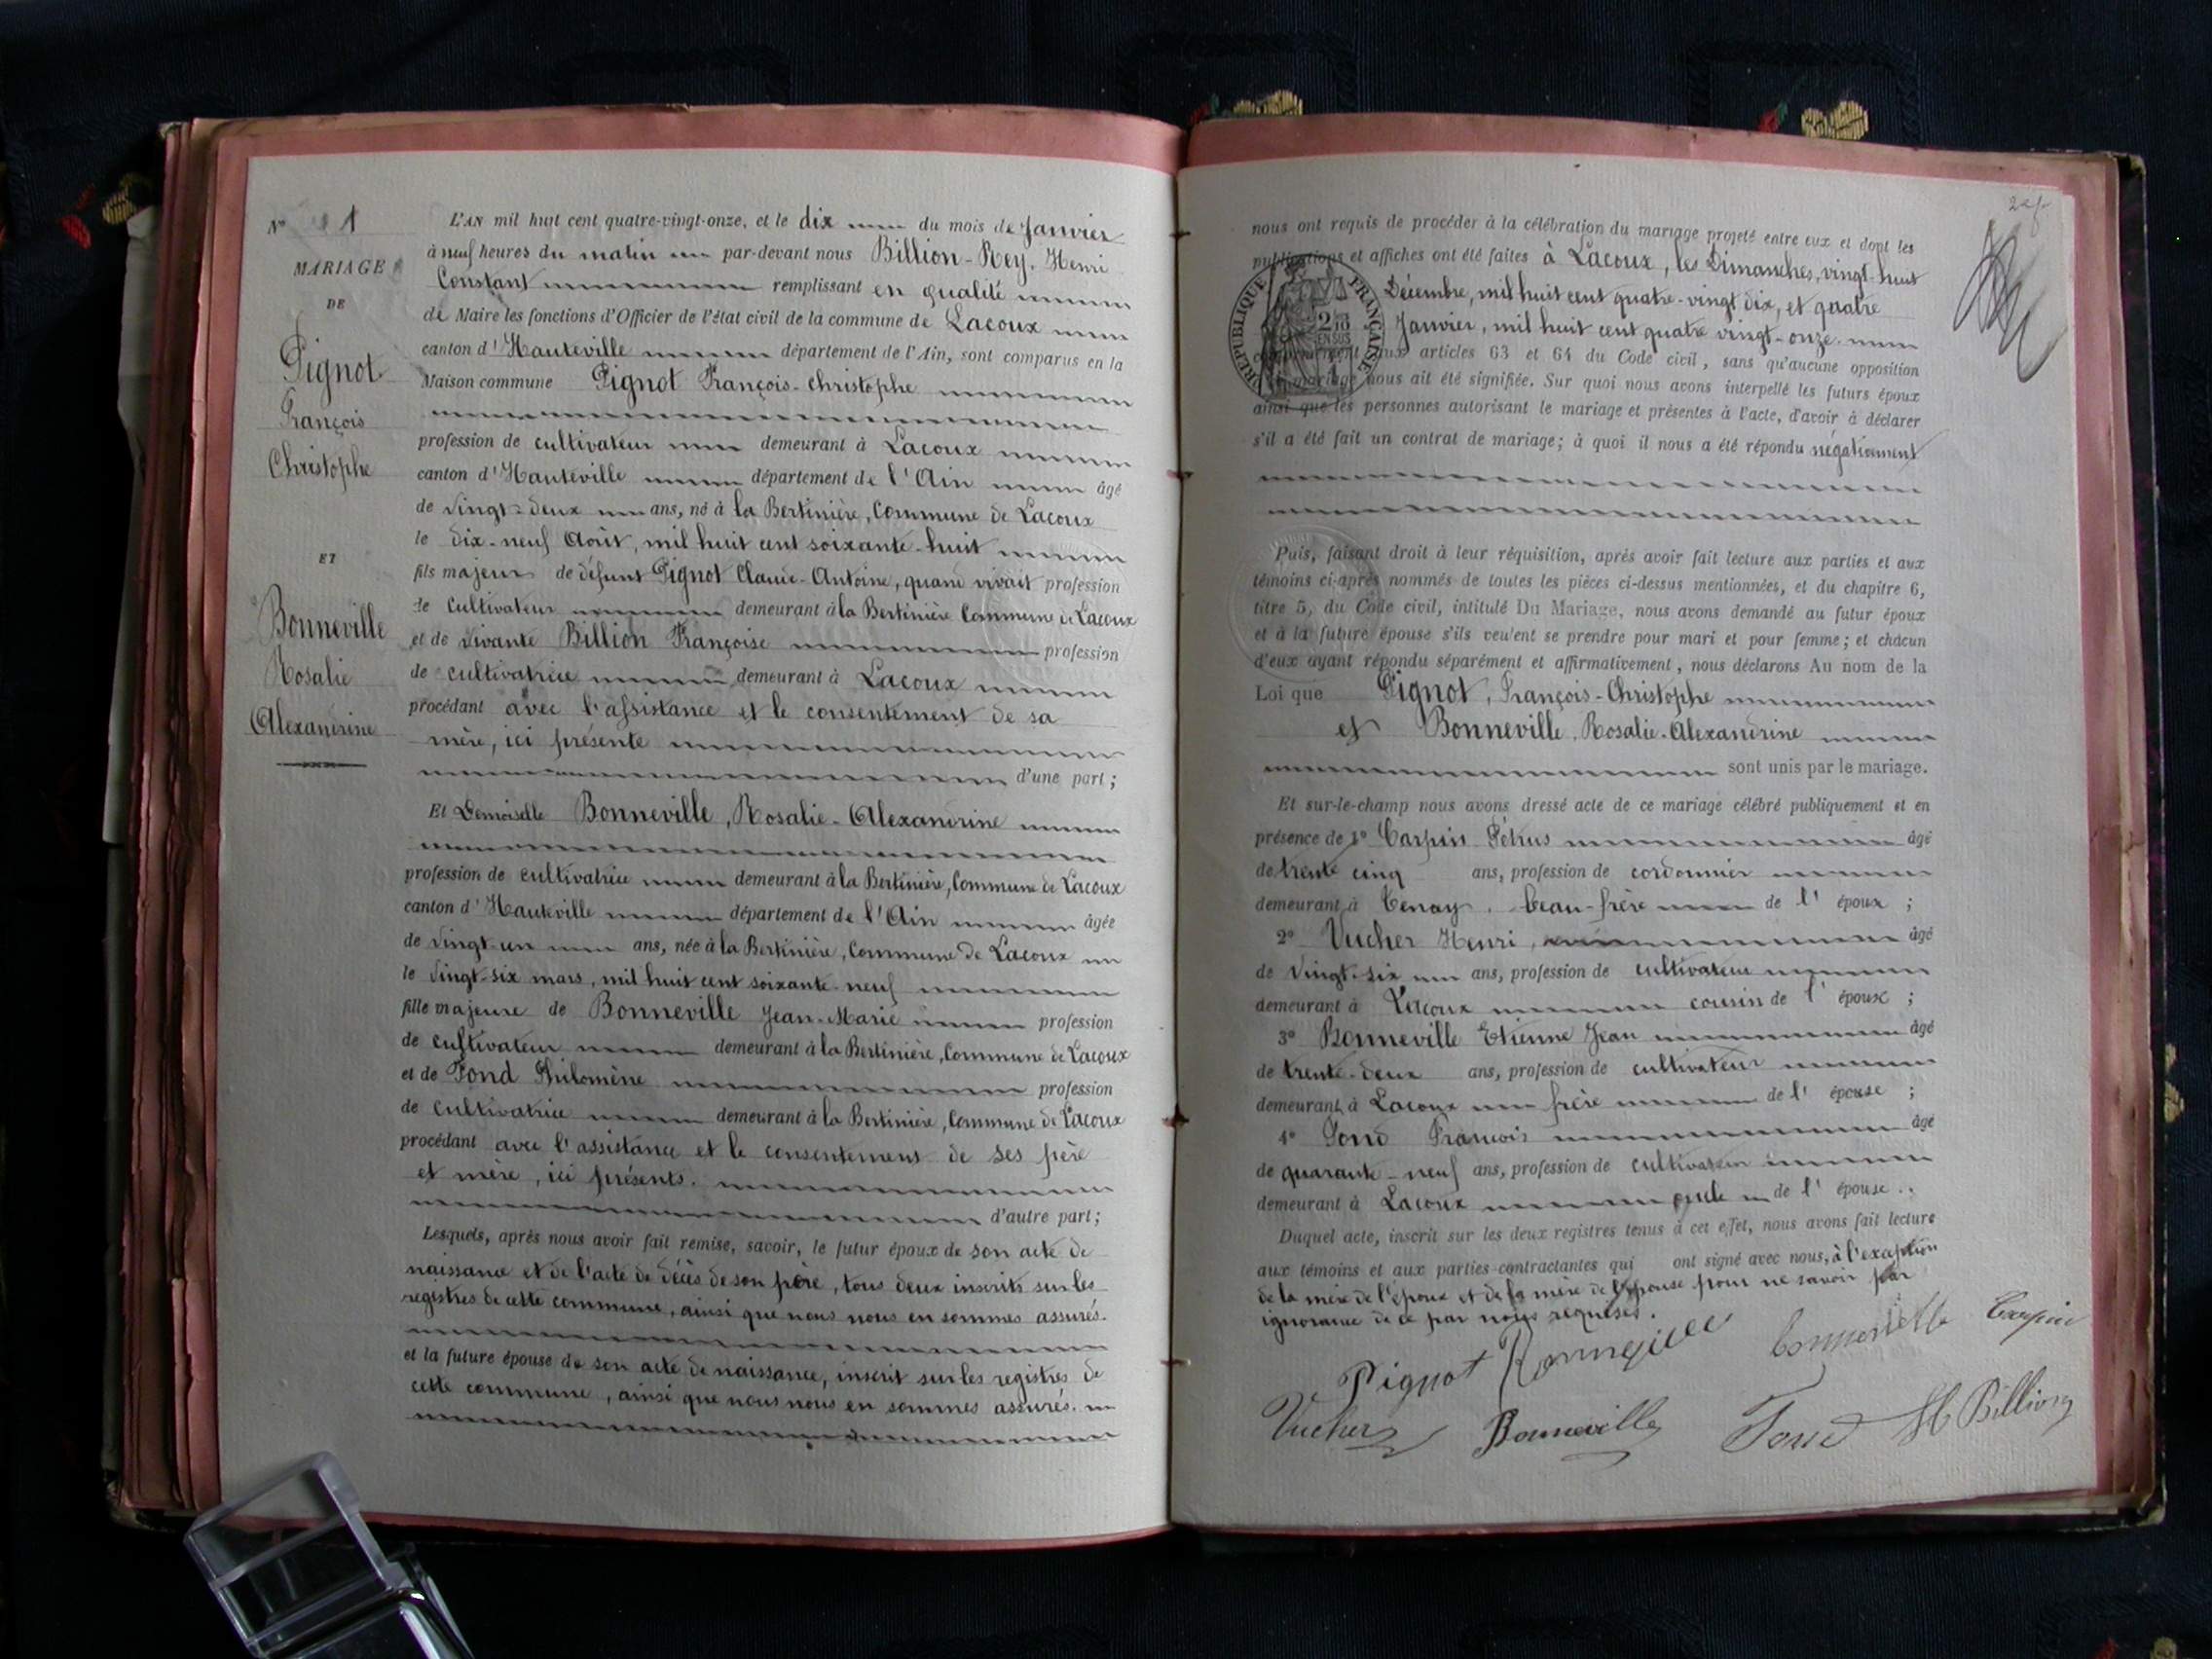 N° 1
MARIAGE
DE
Pignot
François
Christophe
ET
Bonneville
Rosalie
Alexandrine
L'AN mil huit cent quatre-vingt-onze, et le dix du mois de Janvier
à neuf heures du matin par-devant nous Billion-Rey, Henri
Constant remplissant en qualité
de Maire les fonctions d'Officier de l'état civil de la commune de Lacoux
canton d'Hauteville département de l'Ain, sont comparus en la
Maison commune Pignot François-Christophe
profession de cultivateur demeurant à Lacoux
canton d'Hauteville département de l'Ain âgé
de vingt-deux ans, né à la Bertinière, Commune de Lacoux
le dix-neuf Août, mil huit cent soixante-huit
fils majeur de défunt Pignot Claude-Antoine, quand vivait profession
de cultivateur demeurant à la Bertinière Commune de Lacoux
et de vivante Billion Françoise profession
de cultivatrice demeurant à Lacoux
procédant avec l'assistance et le consentement de sa
mère, ici présente
d'une part;
Et Demoiselle Bonneville, Rosalie-Alexandrine
profession de cultivatrice demeurant à la Bertinière, Commune de Lacoux
canton d'Hauteville département de l'Ain âgée
de vingt-un ans, née à la Bertinière, Commune de Lacoux
le vingt-six mars, mil huit cent soixante-neuf
fille majeure de Bonneville Jean-Marie profession
de cultivateur demeurant à la Bertinière, Commune de Lacoux
et de Fond Philomène profession
de cultivatrice demeurant à la Bertinière, Commune de Lacoux
procédant avec l'assistance et le consentement de ses père
et mère, ici présents.
d'autre part;
Lesquels, après nous avoir fait remise, savoir, le futur époux de son acte de
naissance et de l'acte de décès de son père, tous deux inscrits sur les
registres de cette commune, ainsi que nous nous en sommes assurés.
et la future épouse de son acte de naissance, inscrit sur les registres de
cette commune, ainsi que nous nous en sommes assurés.
nous ont requis de procéder à la célébration du mariage projeté entre eux et dont les
publications et affiches ont été faites à Lacoux, les Dimanches, vingt-huit
Décembre, mil huit cent quatre-vingt dix, et quatre
Janvier, mil huit cent quatre vingt-onze.
RÉPUBLIQUE FRANÇAISE
2/10 EN SUS
conformément aux articles 63 et 64 du Code civil, sans qu'aucune opposition
mariage nous ait été signifiée. Sur quoi nous avons interpellé les futurs époux
ainsi que les personnes autorisant le mariage et présentes à l'acte, d'avoir à déclarer
s'il a été fait un contrat de mariage; à quoi il nous a été répondu négativement
Puis, faisant droit à leur réquisition, après avoir fait lecture aux parties et aux
témoins ci-après nommés de toutes les pièces ci-dessus mentionnées, et du chapitre 6,
titre 5, du Code civil, intitulé Du Mariage, nous avons demandé au futur époux
et à la future épouse s'ils veulent se prendre pour mari et pour femme; et chacun
d'eux ayant répondu séparément et affirmativement, nous déclarons Au nom de la
Loi que Pignot, François-Christophe
et Bonneville, Rosalie-Alexandrine
sont unis par le mariage.
Et sur-le-champ nous avons dressé acte de ce mariage célébré publiquement et en
présence de 1° Carpin Pétrus âgé
de trente cinq ans, profession de cordonnier
demeurant à Tenay, beau-frère de l'époux;
2° Vucher Henri, âgé
de vingt-six ans, profession de cultivateur
demeurant à Lacoux cousin de l'époux;
3° Bonneville Etienne Jean âgé
de trente-deux ans, profession de cultivateur
demeurant à Lacoux frère de l'épouse;
4° Fond François âgé
de quarante-neuf ans, profession de cultivateur
demeurant à Lacoux oncle de l'épouse..
Duquel acte, inscrit sur les deux registres tenus à cet effet, nous avons fait lecture
aux témoins et aux parties contractantes qui ont signé avec nous, à l'exception
de la mère de l'époux et de la mère de l'épouse pour ne savoir par
ignorance de ce par nous requises.
Pignot Bonneville Bonneville Carpin
Vucher Bonneville Fond H Billion